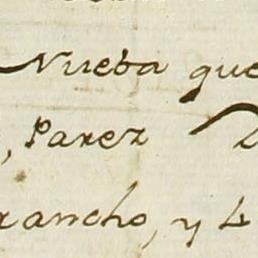 Nueba que
, Parez
rancho, y 4